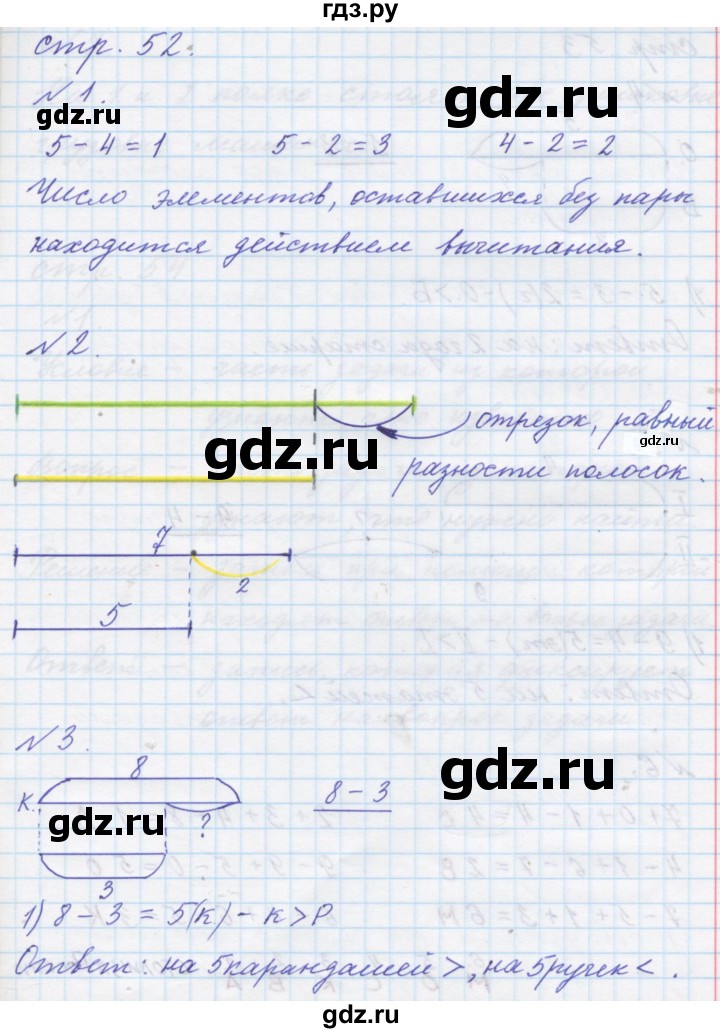 гдз.ру
стр. 52.
№1.
gdz.ru
gdz.ru
5 - 4 = 1 5 - 2 = 3 4 - 2 = 2
Число элементов, оставшихся без пары
находится действием вычитания.
№2.
gdz.ru
отрезок, равный
gdz.ru
разности полосок.
7
2
5
№3.
gdz.ru
8
К.
8 - 3
gdz.ru
?
3
1) 8 - 3 = 5(К) - К > Р
Ответ: на 5 карандашей >, на 5 ручек <.
gdz.ru